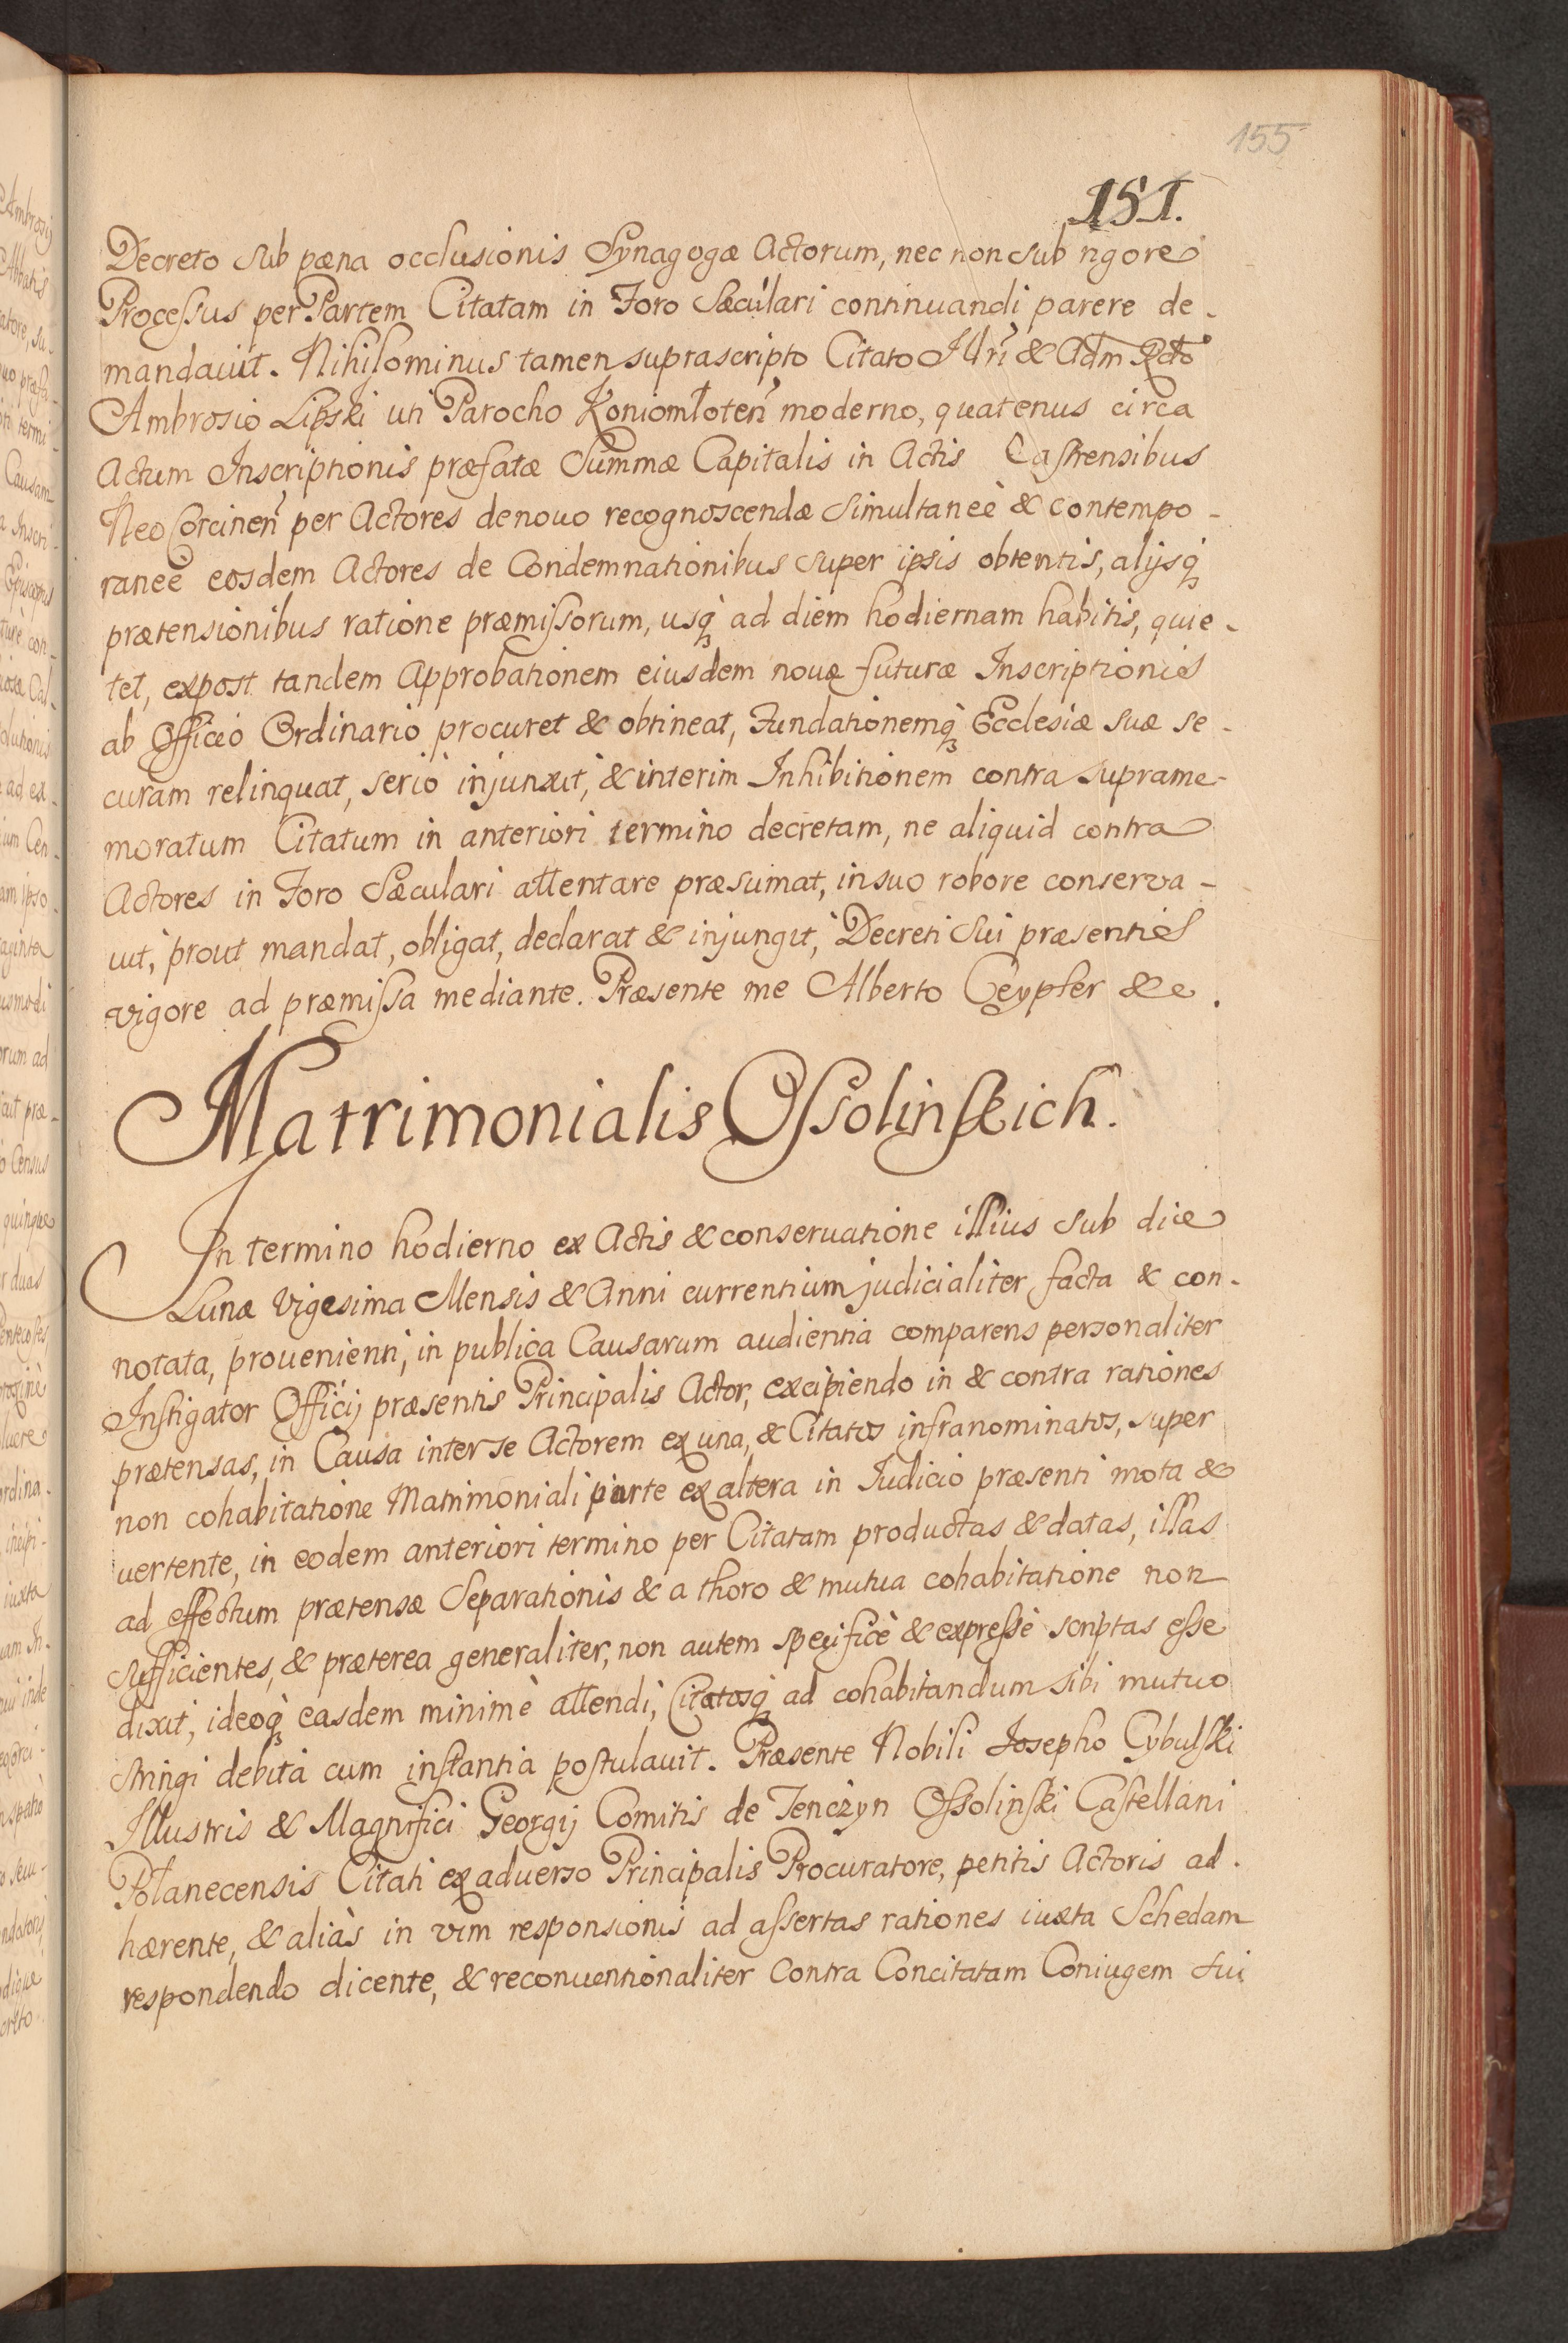 155
151.
Decreto sub pæna occlusionis Synagogæ Actorum, nec non sub rigore
Processus per Partem Citatam in Foro Sæculari continuandi parere de-
mandavit. Nihilominus tamen suprascripto Citato Illri & Adm Rdo
Ambrosio Lipski uti Parocho Koniomłoteñ moderno, quatenus circa
Actum Inscriptionis præfatæ Summæ Capitalis in Actis Castrensibus
Neo Corcineñ per Actores denouo recognoscendæ simultaneè & contempo-
raneè eosdem Actores de Condemnationibus super ipsis obtentis, alijsq̃
prætensionibus ratione præmissorum, usq̃ ad diem hodiernam habitis, quie-
tet, expost tandem Approbationem eiusdem nouæ futuræ Inscriptionis
ab Officio Ordinario procuret & obtineat, Fundationemq̃ Ecclesiæ suæ se-
curam relinquat, seriò injunxit, & interim Inhibitionem contra suprame-
moratum Citatum in anteriori termino decretam, ne aliquid contra
Actores in Foro Sæculari attentare præsumat, in suo robore conserva-
uit, prout mandat, obligat, declarat & injungit, Decreti sui præsentis
vigore ad præmissa mediante. Præsente me Alberto Ceypler &c.
Matrimonialis Ossolinskich.
In termino hodierno ex Actis & conseruatione illius sub die
Lunæ Vigesima Mensis & Anni currentium judicialiter facta & con-
notata, prouenienti, in publica Causarum audientia comparens personaliter
Instigator Officij præsentis Principalis Actor, excipiendo in & contra rationes
prætensas, in Causa inter se Actorem ex una, & Citatos infranominatos, super
non cohabitatione Matrimoniali parte ex altera in Iudicio præsenti mota &
uertente, in eodem anteriori termino per Citatam productas & datas, illas
ad effectum prætensæ Separationis & a thoro & mutua cohabitatione non
sufficientes, & præterea generaliter, non autem specificè & expressè scriptas esse
dixit, ideoq̃ easdem minimè attendi, Citatosq̃ ad cohabitandum sibi mutuo
stringi debita cum instantia postulauit. Præsente Nobili Josepho Cybulski
Illustris & Magnifici Georgij Comitis de Tenczyn Ossolinski Castellani
Połanecensis Citati ex aduerso Principalis Procuratore, petitis Actoris ad-
hærente, & aliàs in vim responsionis ad assertas rationes iuxta Schedam
respondendo dicente, & reconuentionaliter Contra Concitatam Coniugem sui